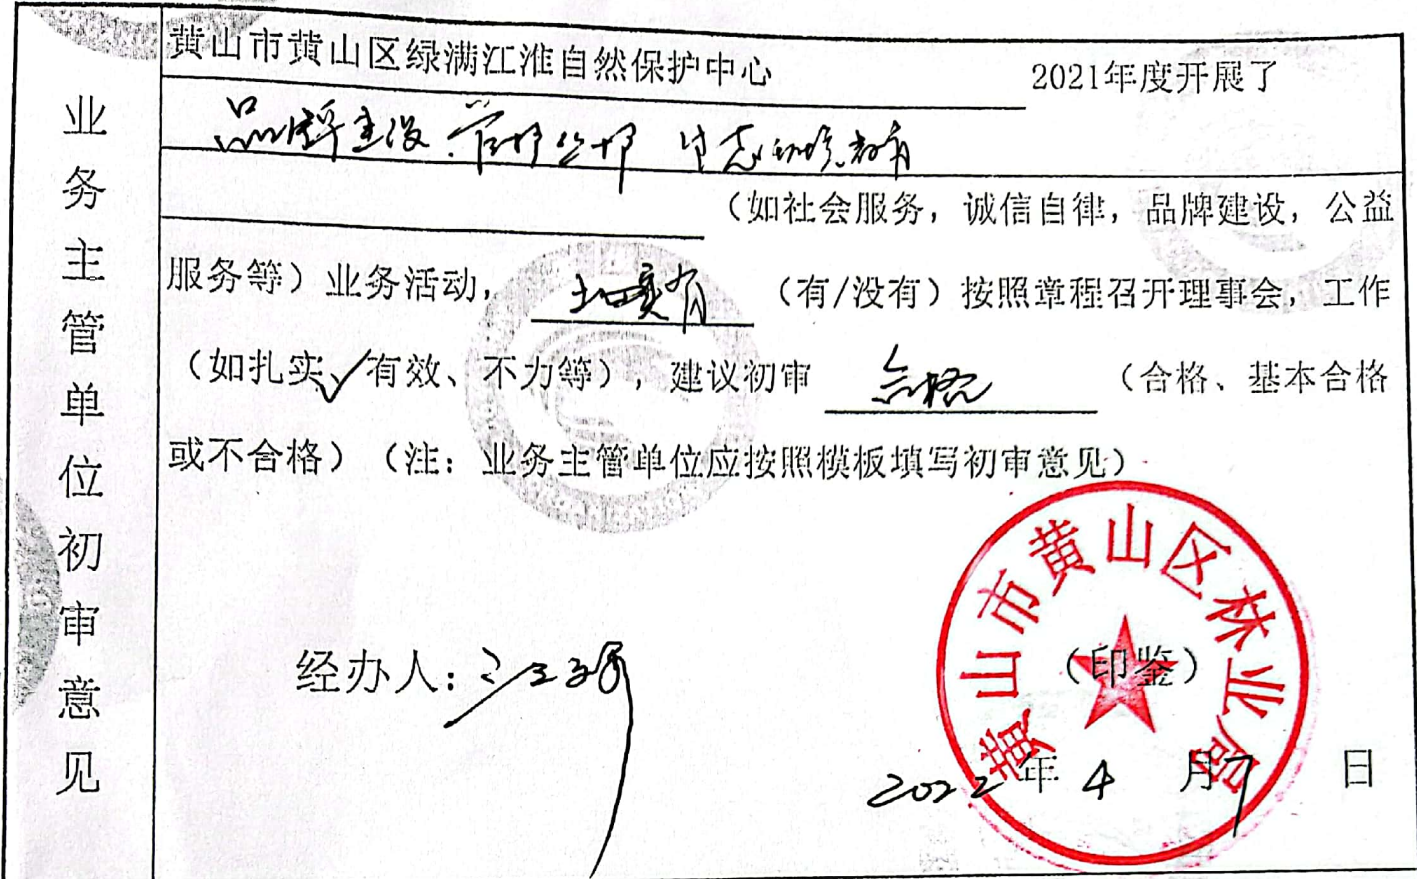 业务主管单位初审意见
黄山市黄山区绿满江淮自然保护中心 2021年度开展了
品牌建设 生态环境教育
（如社会服务，诚信自律，品牌建设，公益
服务等）业务活动， 有 （有/没有）按照章程召开理事会，工作
（如扎实、✓有效、不力等），建议初审 合格 （合格、基本合格
或不合格）（注：业务主管单位应按照模板填写初审意见）
黄山市黄山区林业局
经办人： （印鉴）
2022年4月7日